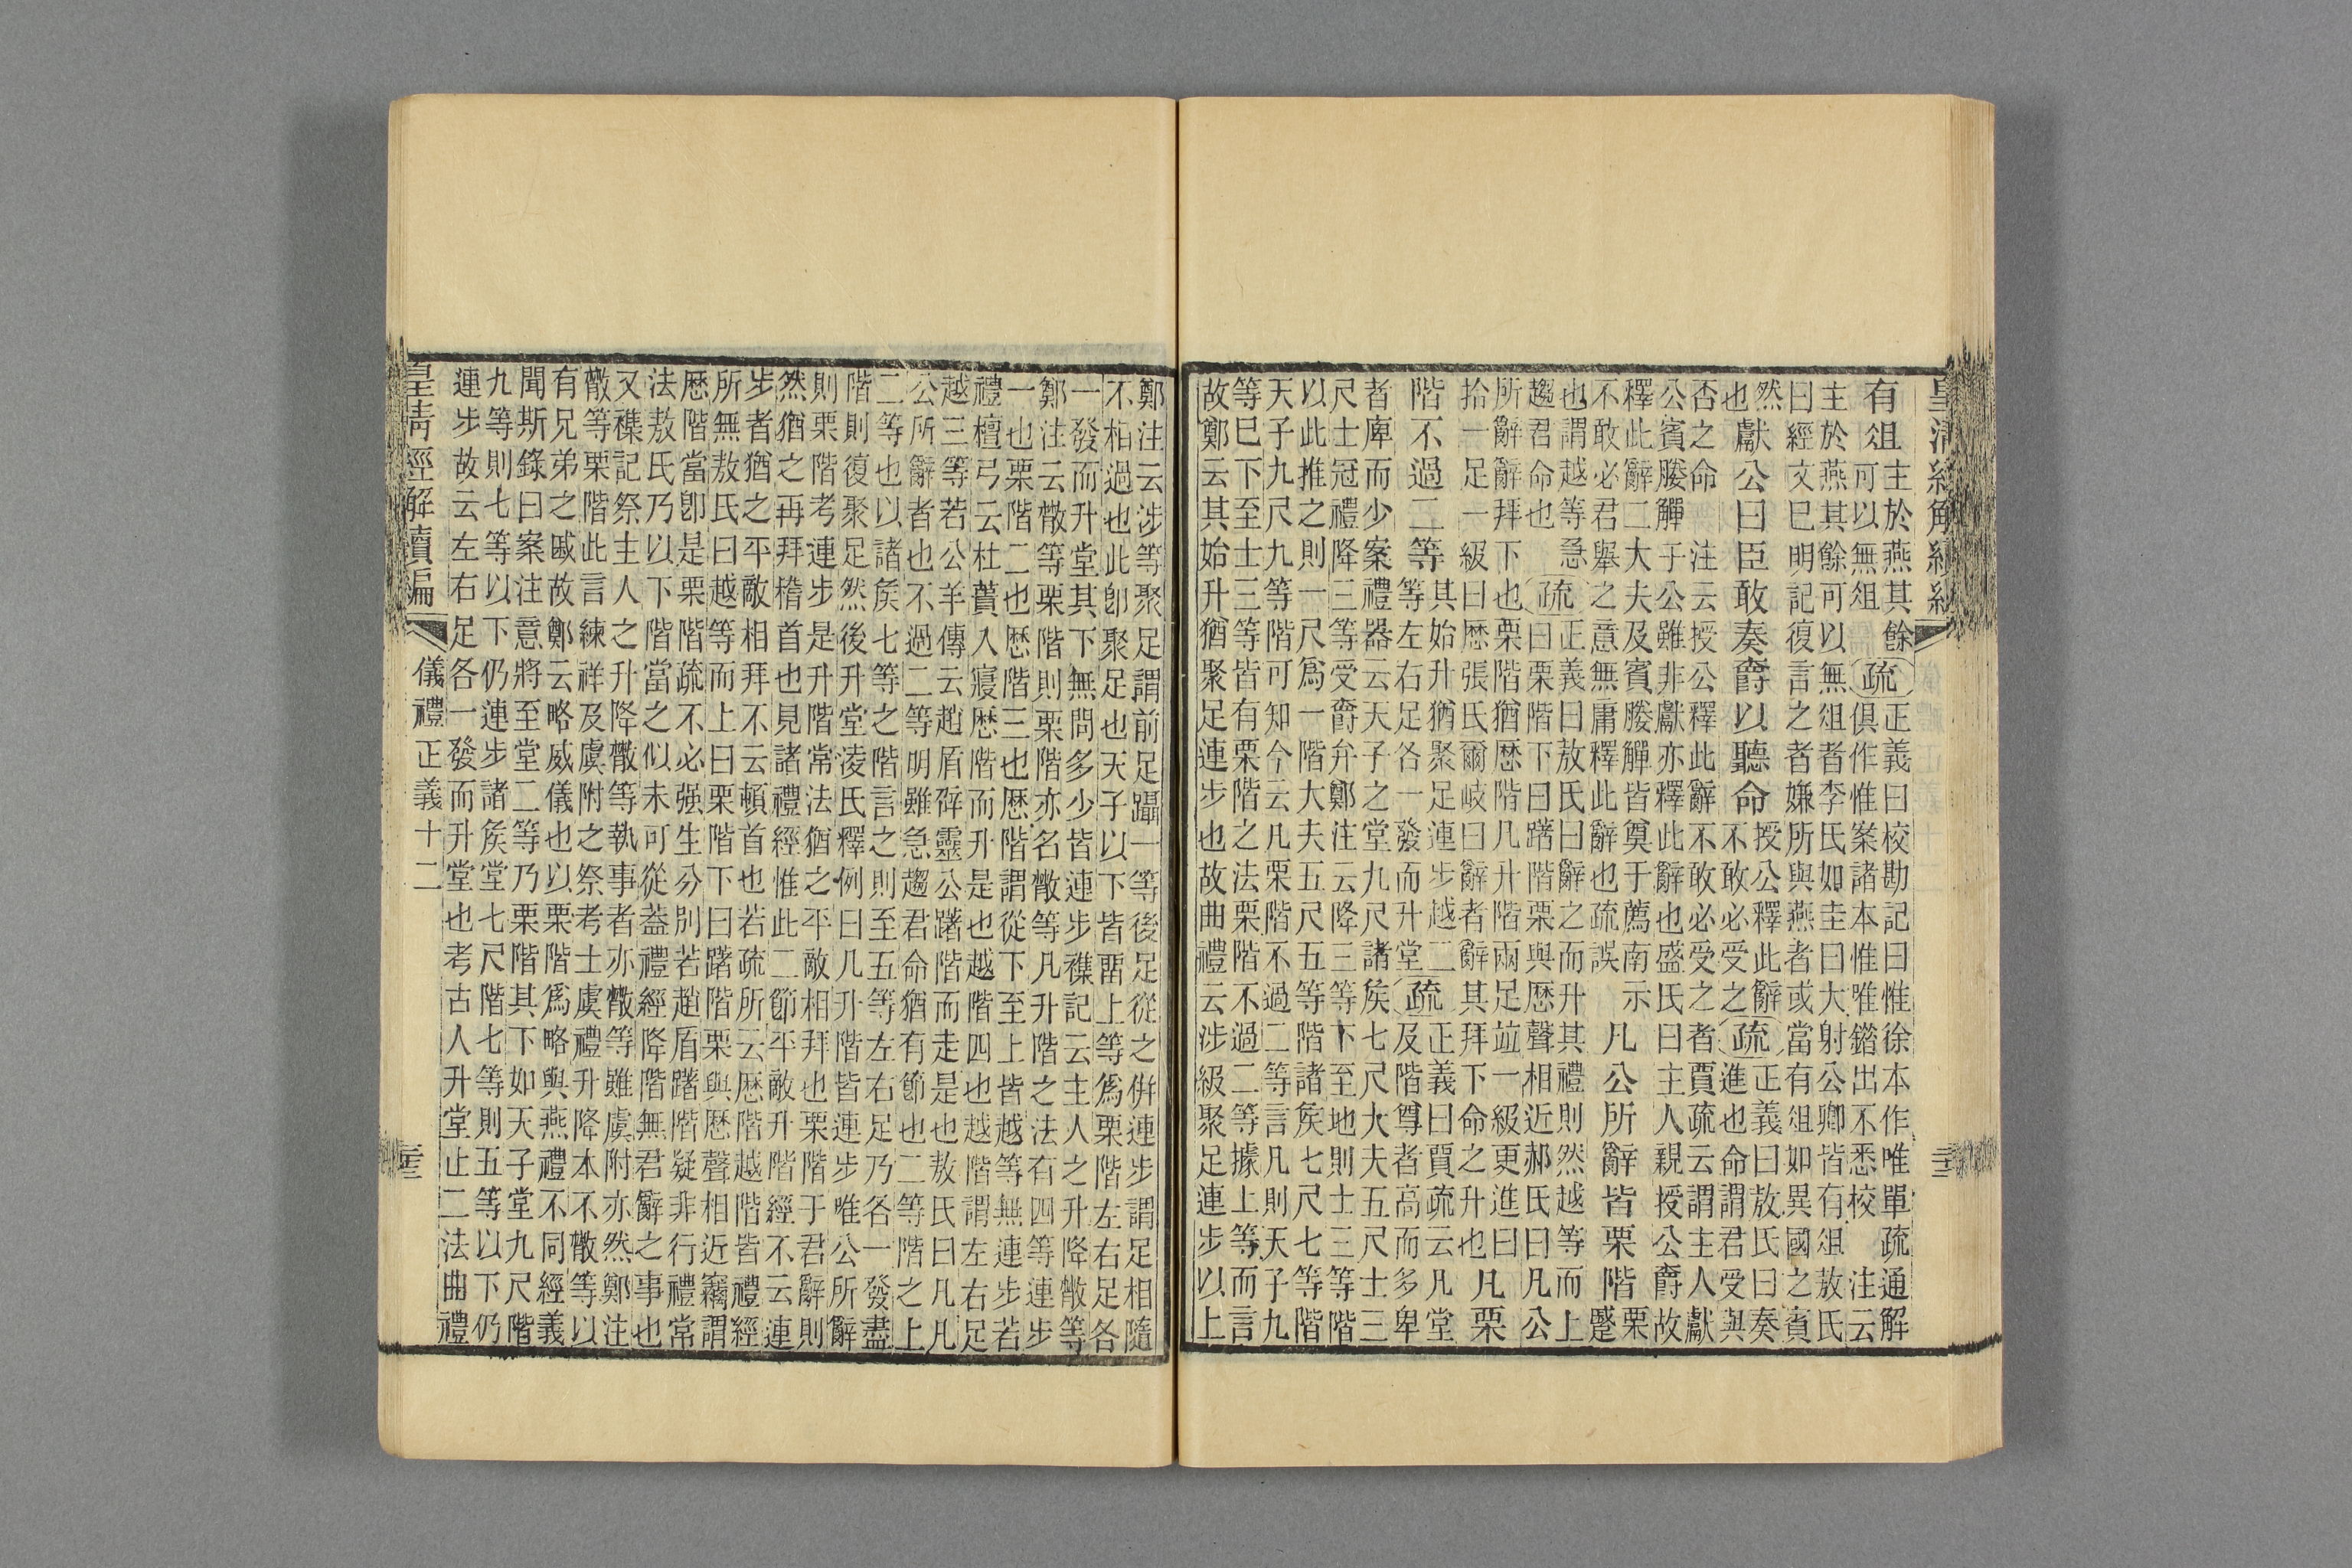 皇清經解續編
有俎 主於燕其餘
可以無俎
疏 正義曰校勘記曰惟徐本作唯單疏通解
俱作惟案諸本惟唯鍇出不悉校 注云
主於燕其餘可以無俎者李氏如圭曰大射公卿皆有俎敖氏
曰經文已明記復言之者嫌所與燕者或當有俎如異國之賓
然
也
獻公曰臣敢奏爵以聽命 授公釋此辭
不敢必受之
疏 正義曰敖氏曰奏
進也命謂君受與
否之命 注云授公釋此辭不敢必受之者賈疏云謂主人獻
公賓媵觶于公雖非獻亦釋此辭也盛氏曰主人親授公爵故
釋此辭二大夫及賓媵觶皆奠于薦南示
不敢必君舉之意無庸釋此辭也疏誤
凡公所辭皆栗階 栗
蹙
也謂越等急
趨君命也
疏 正義曰敖氏曰辭之而升其禮則然越等而上
曰栗階下曰躇階栗與歷聲相近郝氏曰凡公
所辭辭拜下也栗階猶歷階凡升階兩足竝一級更進曰
拾一足一級曰歷張氏爾岐曰辭者辭其拜下命之升也
凡栗
階不過二等 其始升猶聚足連步越二
等左右足各一發而升堂
疏 正義曰賈疏云凡堂
及階尊者高而多卑
者庳而少案禮器云天子之堂九尺諸矦七尺大夫五尺士三
尺士冠禮降三等受爵弁鄭注云降三等下至地則士三等階
以此推之則一尺爲一階大夫五尺五等階諸矦七尺七等階
天子九尺九等階可知今云凡栗階不過二等言凡則天子九
等已下至士三等皆有栗階之法栗階不過二等據上等而言
故鄭云其始升猶聚足連步也故曲禮云涉級聚足連步以上
鄭注云涉等聚足謂前足躡一等後足從之併連步謂足相隨
不相過也此卽聚足也天子以下皆畱上等爲栗階左右足各
一發而升堂其下無問多少皆連步襍記云主人之升降散等
鄭注云散等栗階則栗階亦名散等凡升階之法有四等連步
一也栗階二也歷階三也歷階謂從下至上皆越等無連步若
禮檀弓云杜蕢入寢歷階而升是也越階四也越階謂左右足
越三等若公羊傳云趙盾辟靈公躇階而走是也敖氏曰凡凡
公所辭者也不過二等明雖急趨君命猶有節也二等階之上
二等也以諸矦七等之階言之則至五等左右足乃各一發盡
階則復聚足然後升堂淩氏釋例曰凡升階皆連步唯公所辭
則栗階考連步是升階常法猶之平敵相拜也栗階于君辭則
然猶之再拜稽首也見諸禮經惟此二節平敵升階經不云連
步者猶之平敵相拜不云頓首也若疏所云歷階越階皆禮經
所無敖氏曰越等而上曰栗階下曰躇階栗與歷聲相近竊謂
歷階當卽是栗階疏不必强生分別若趙盾躇階疑非行禮常
法敖氏乃以下階當之似未可從葢禮經降階無君辭之事也
又襍記祭主人之升降散等執事者亦散等雖虞附亦然鄭注
散等栗階此言練祥及虞附之祭考士虞禮升降本不散等以
有兄弟之戚故鄭云略威儀也以栗階爲略與燕禮不同經義
聞斯錄曰案注意將至堂二等乃栗階其下如天子堂九尺階
九等則七等以下仍連步諸矦堂七尺階七等則五等以下仍
連步故云左右足各一發而升堂也考古人升堂止二法曲禮
皇清經解續編 儀禮正義十二